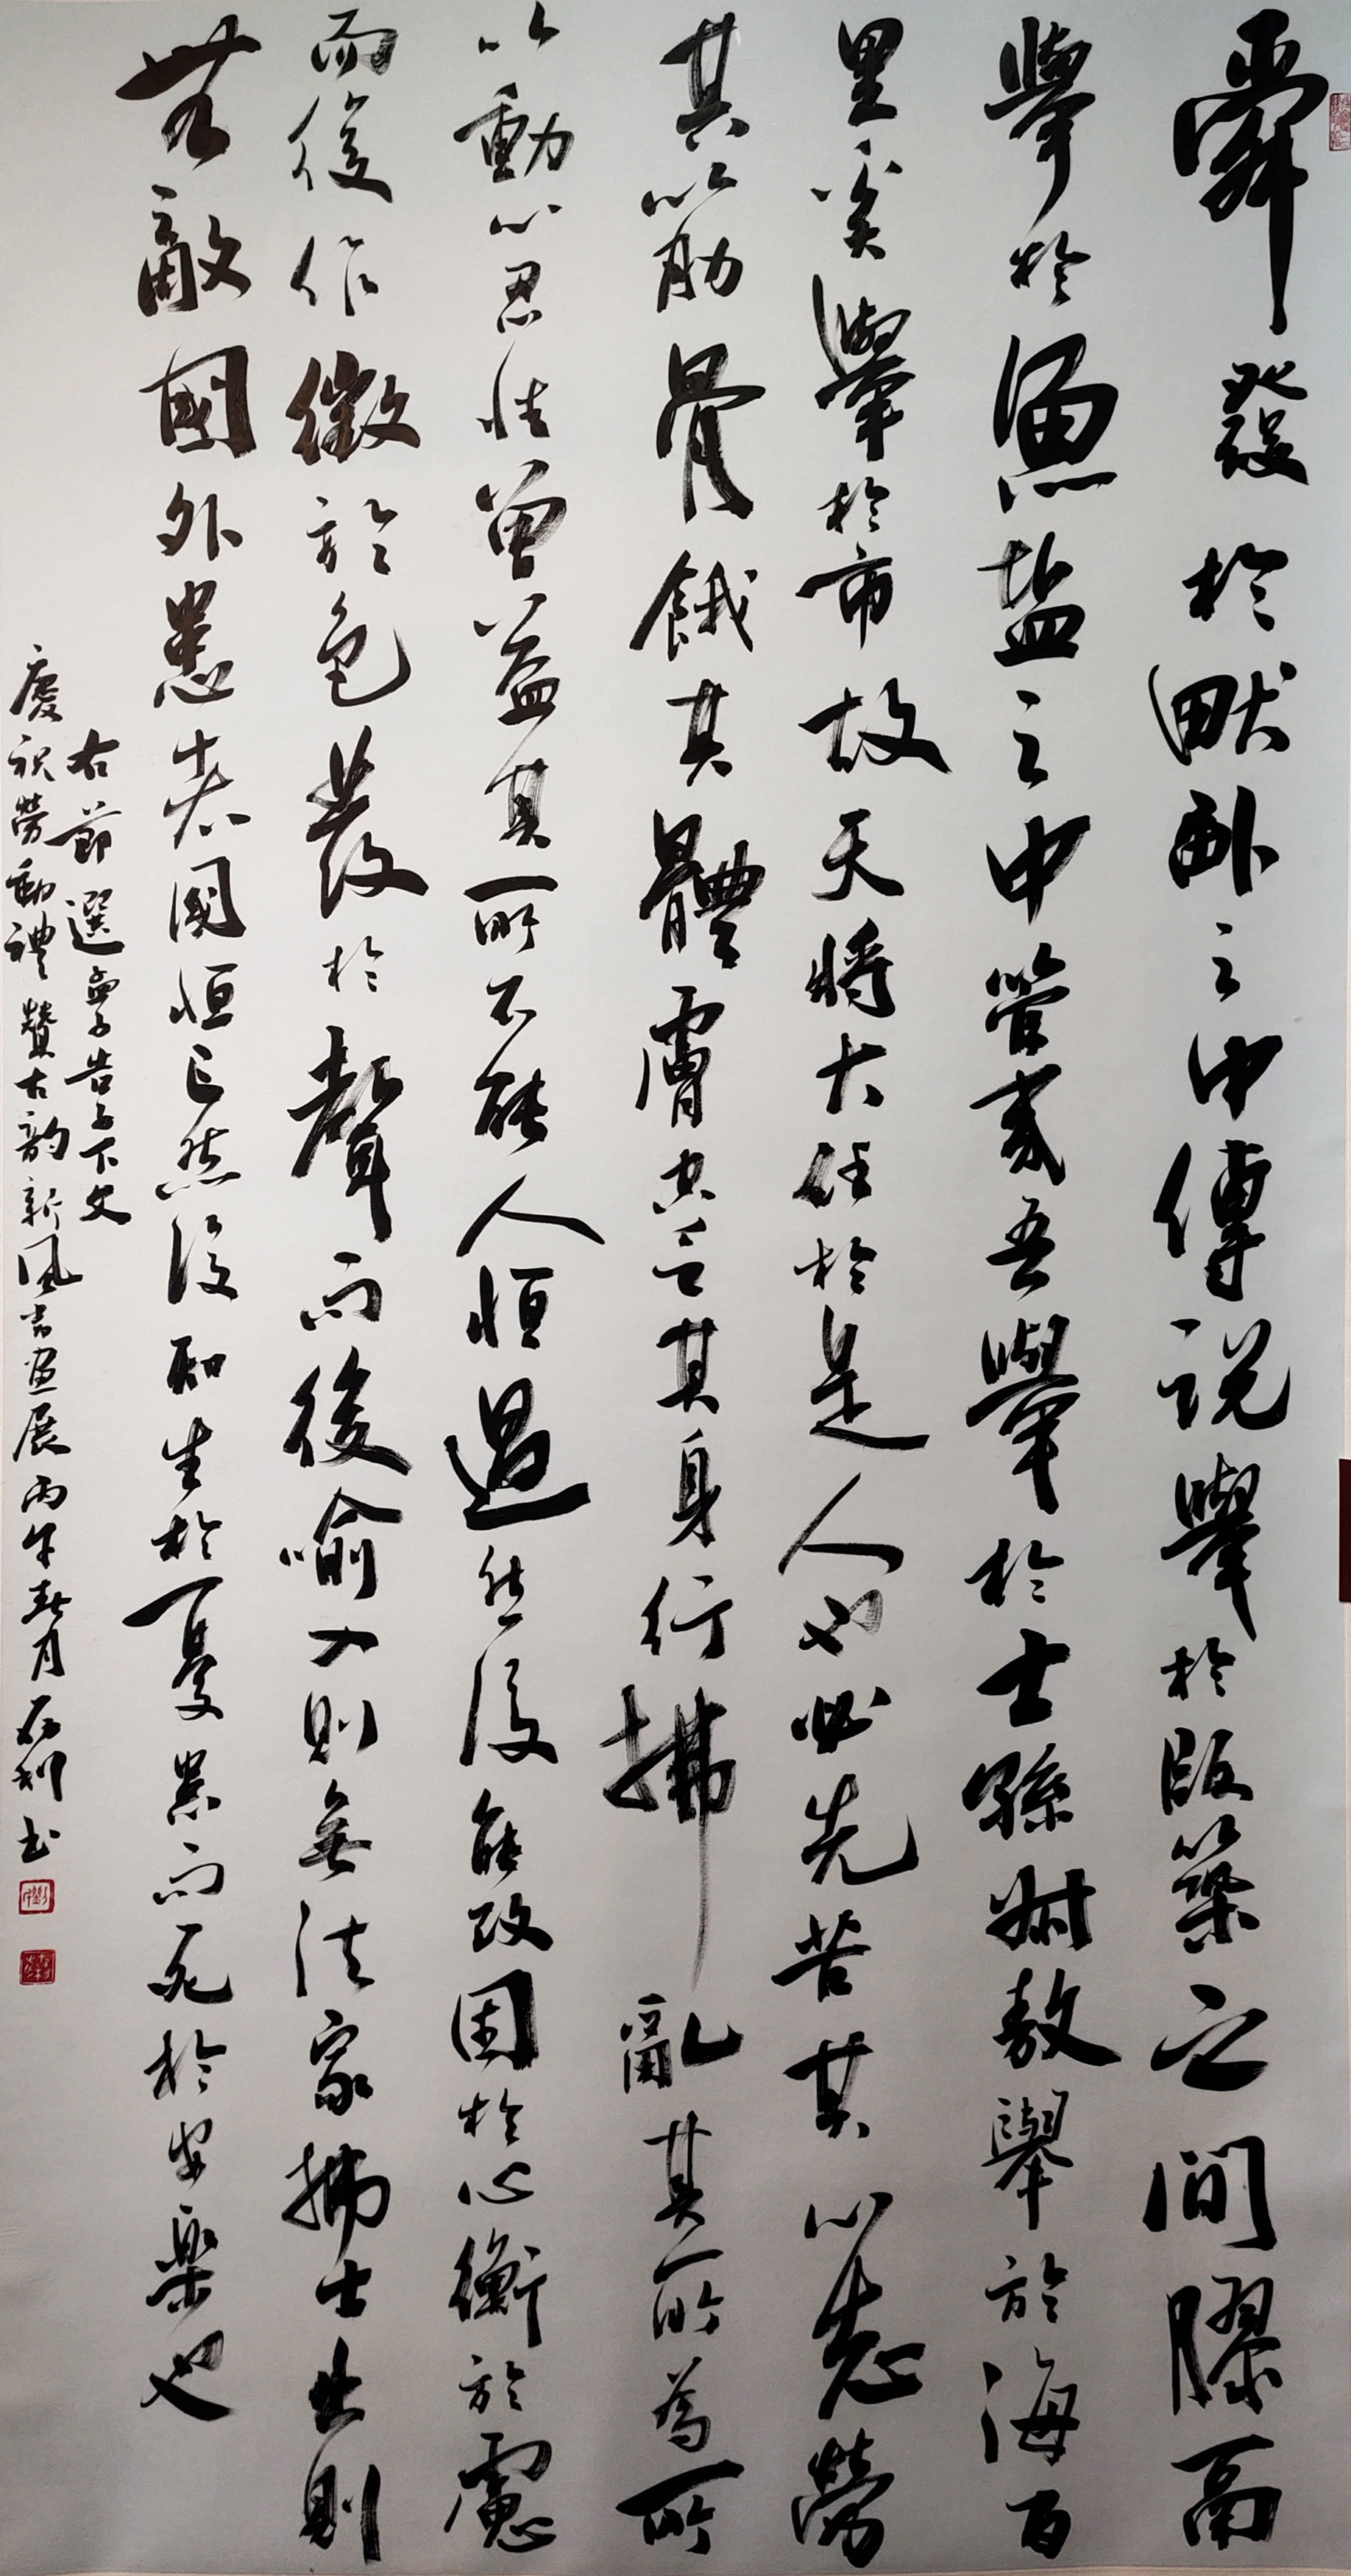 舜發於畎畝之中傅說舉於版築之間膠鬲
舉於漁鹽之中管夷吾舉於士孫叔敖舉於海百
里奚舉於市故天將大任於是人也必先苦其心志勞
其筋骨餓其體膚空乏其身行拂亂其所為所
以動心忍性曾益其所不能人恒過然後能改困於心衡於慮
而後作徵於色發於聲而後喻入則無法家拂士出則
無敵國外患者國恒亡然後知生於憂患而死於安樂也
右節選孟子告子下文
慶祝勞動禮贊古韵新風書畫展丙午春月石利書